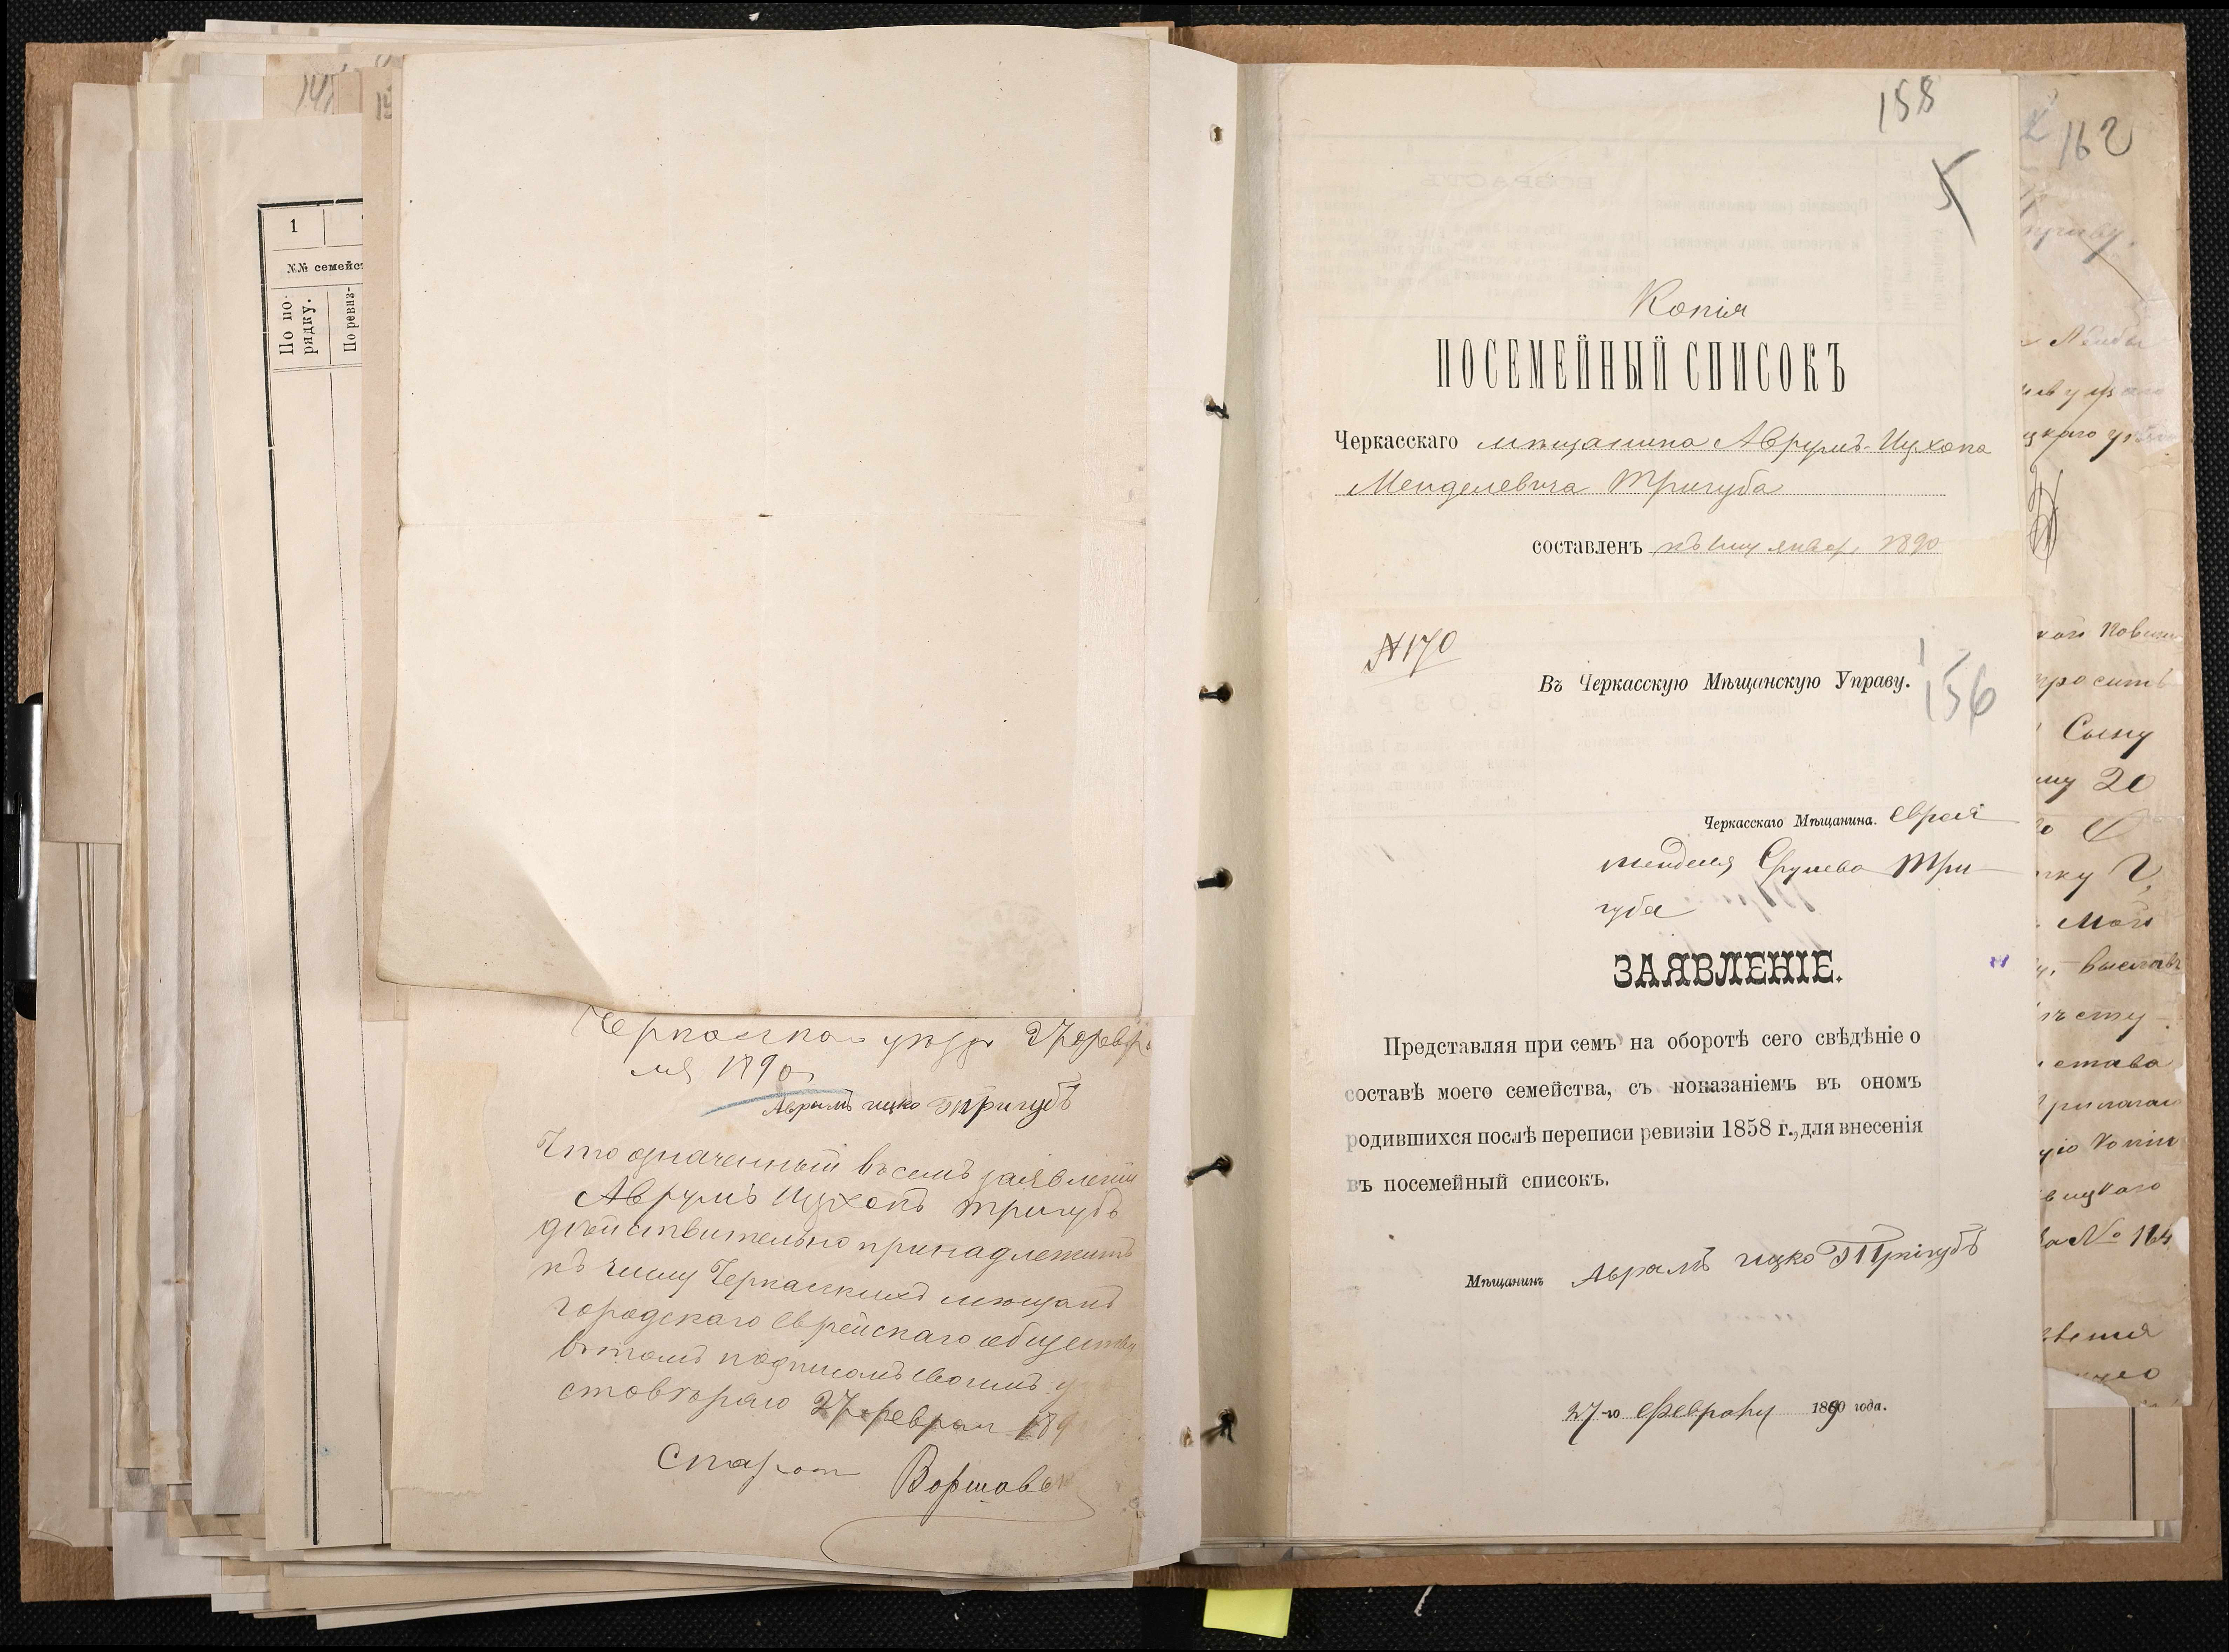 1
№№ семейс
По по-
рядку.
По ревиз-
Черкасскаго уѣзда 27 февра
ля 1890 г
Аврамъ ицко Тригубъ
Что означенный въ семъ заявленіи
Аврумъ Ицхокъ Тригубъ
дѣйствительно принадлежитъ
къ числу Черкасскихъ мѣщанъ
городскаго еврейскаго общества
въ томъ подписомъ своимъ
27 февраля 189
Староста Варшавс
158
5
Копія
ПОСЕМЕЙНЫЙ СПИСОКЪ
Черкасскаго мѣщанина Аврумъ-Ицхока
Менделевича Тригуба
составленъ къ 1му январ. 1890
№170
Въ Черкасскую Мѣщанскую Управу.
156
Черкасскаго Мѣщанина. еврея
Менделя Срулева Три-
губа
ЗАЯВЛЕНІЕ.
Представляя при семъ на оборотѣ сего свѣдѣніе о
составѣ моего семейства, съ показаніемъ въ ономъ
родившихся послѣ переписи ревизіи 1858 г., для внесенія
въ посемейный списокъ.
Мѣщанинъ Аврамъ ицко Тригубъ
27-го Февраля 1890 года.
162
просить
Сыну
му 20
Мой
става
копію
№ 114